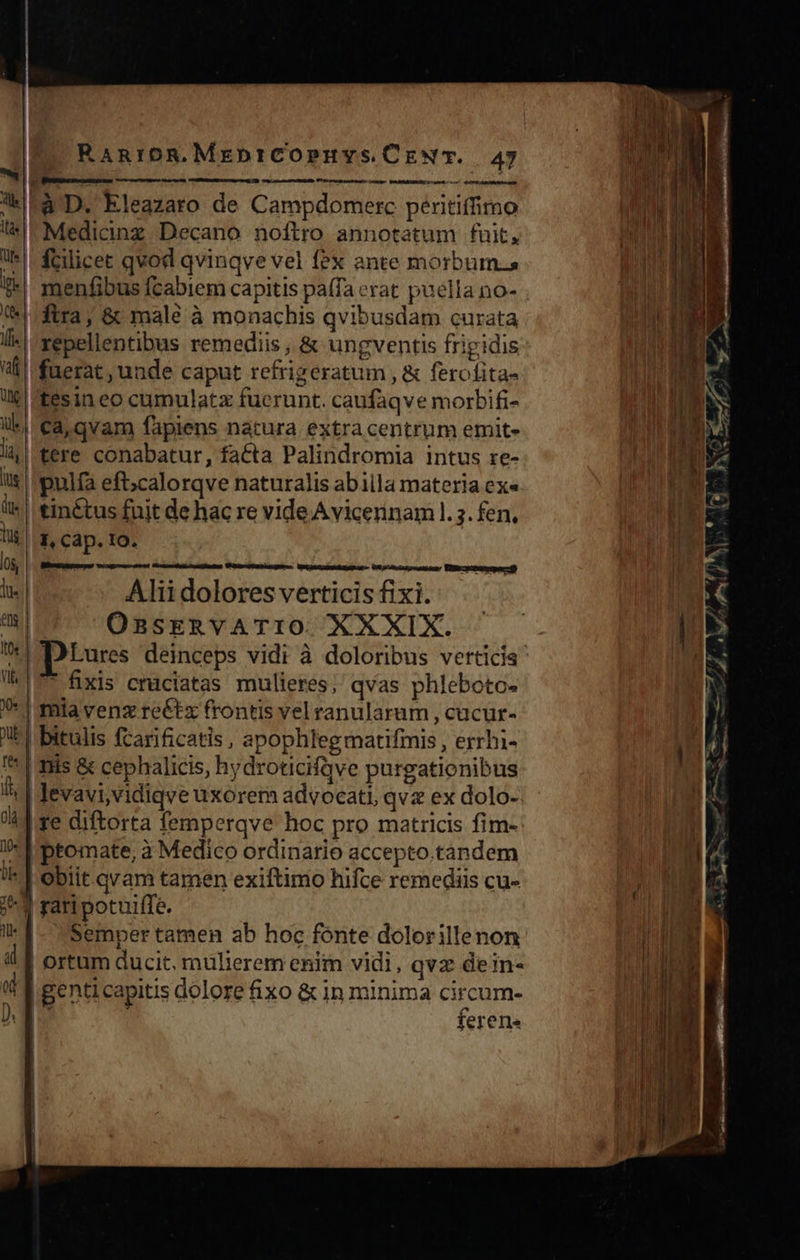 RARIOR. MEDICOPHYS. CENT. 47
à D. Eleazaro de Campdomerc peritiſſimo
Medicinæ Decano noſtro annotatum fuit,
ſcilicet qvod qvinqve vel ſex ante morbum
menſibus ſcabiem capitis paſſa erat puella no-
ſtra, & malè à monachis qvibusdam curata
repellentibus remediis, & ungventis frigidis
fuerat, unde caput refrigeratum, & ſeroſita-
tes in eo cumulatæ fuerunt. cauſaqve morbifi-
ca, qvam ſapiens natura extra centrum emit-
tere conabatur, facta Palindromia intus re-
pulſa eſt, calorqve naturalis ab illa materia ex-
tinctus fuit de hac re vide Avicennam l. 3. fen,
1, cap. 10.
Alii dolores verticis fixi.
OBSERVATIO XXXIX.
PLures deinceps vidi à doloribus verticis
fixis cruciatas mulieres, qvas phleboto-
mia venæ rectæ frontis vel ranularum, cucur-
bitulis ſcarificatis, apophlegmatiſmis, errhi-
nis & cephalicis, hydroticiſqve purgationibus
levavi, vidiqve uxorem advocati, qvæ ex dolo-
re diſtorta ſemperqve hoc pro matricis ſim-
ptomate, à Medico ordinario accepto. tandem
obiit qvam tamen exiſtimo hiſce remediis cu-
rari potuiſſe.
Semper tamen ab hoc fonte dolor ille non
ortum ducit. mulierem enim vidi, qvæ de in-
genti capitis dolore fixo & in minima circum-
feren-